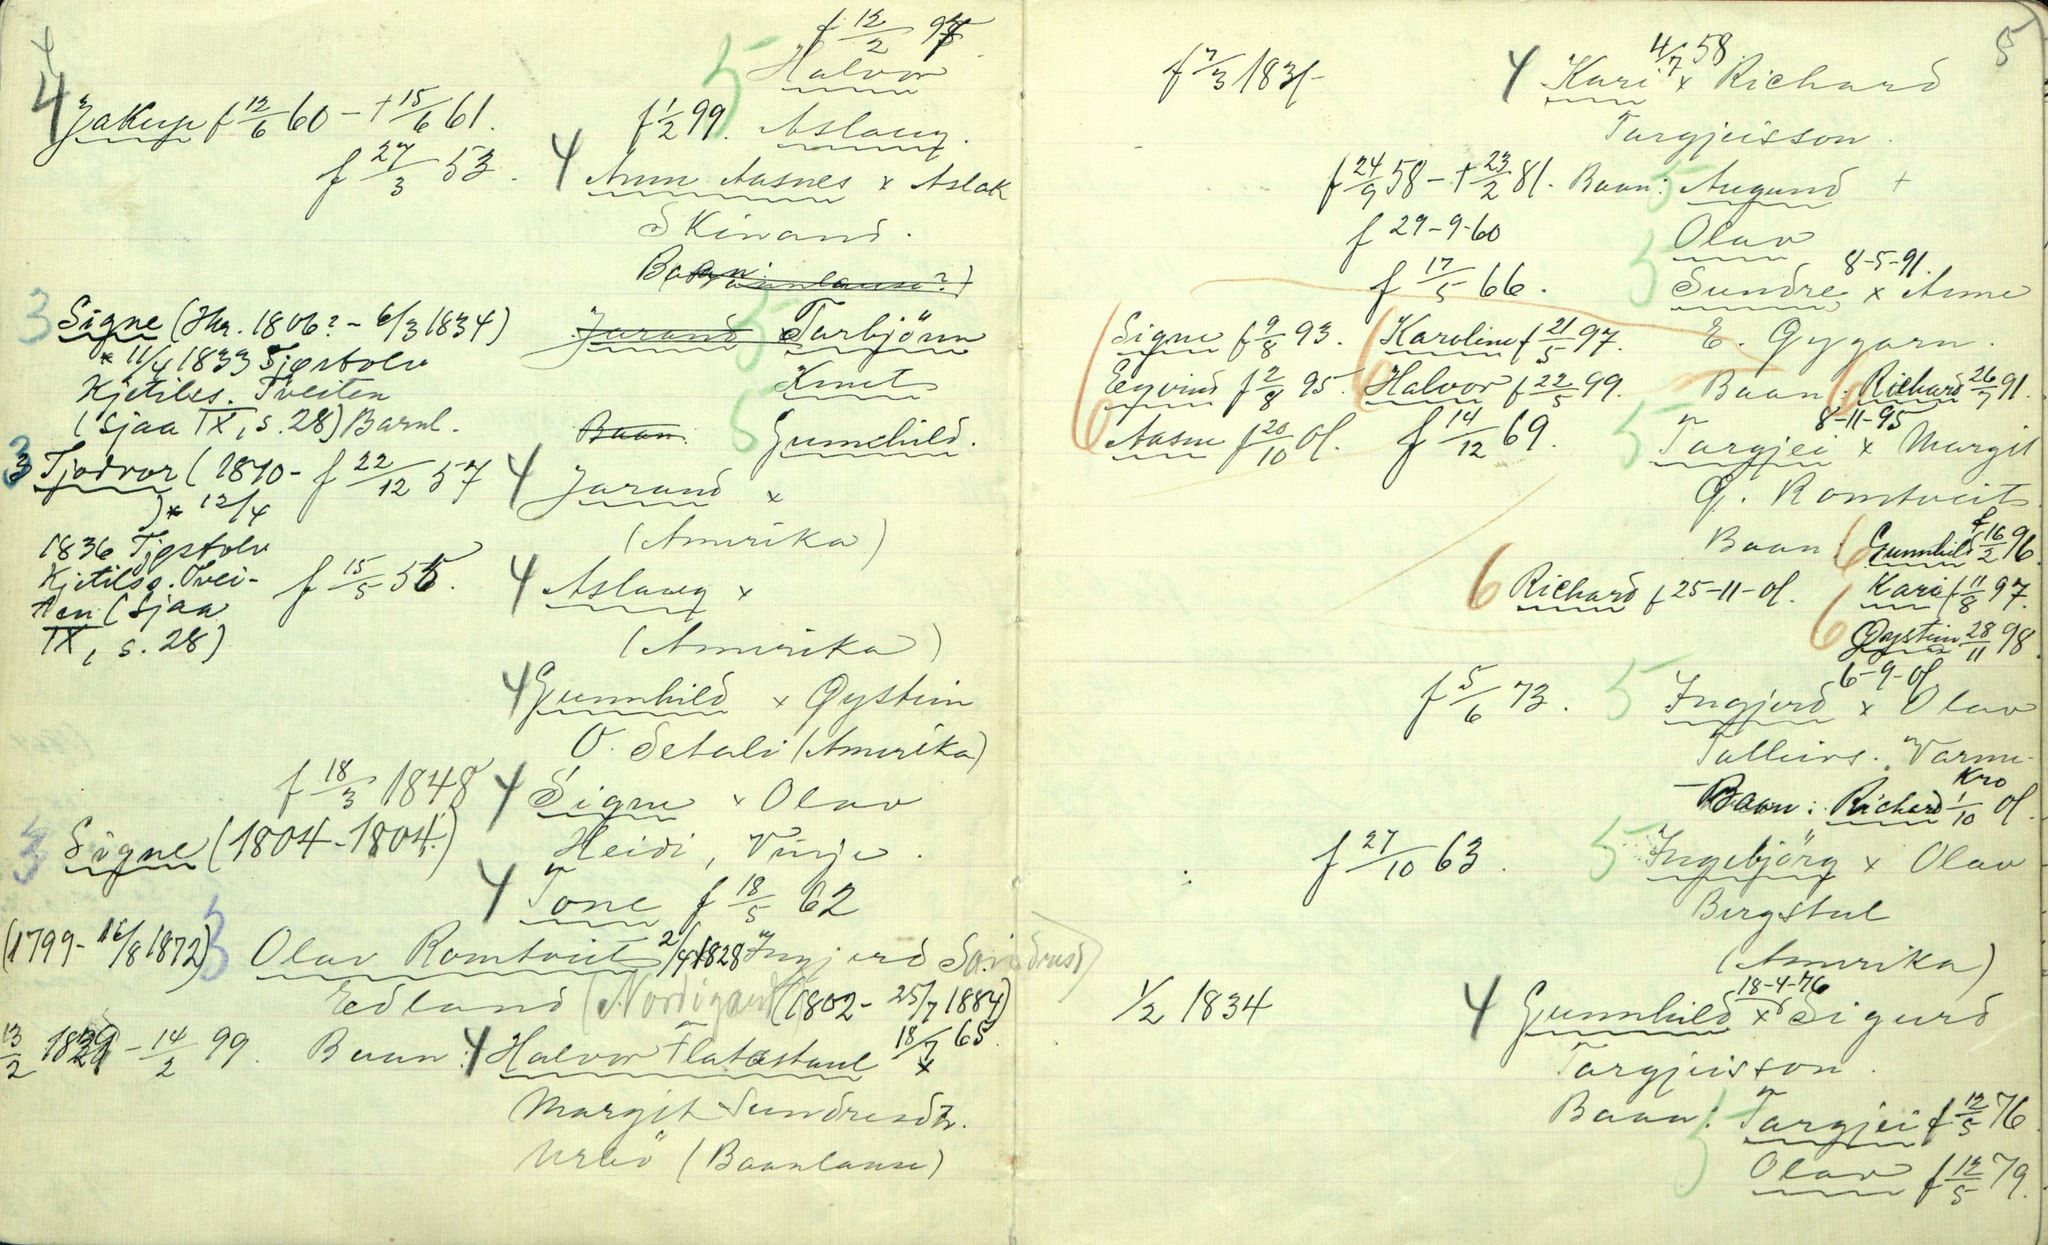 4
f 12/2 97
5 Halvor
4 Jakup f 12/6 60 – † 15/6 61.
f 1/2 99. Aslaug.
f 27/3 53. 4 Anne Aasnes x Aslak
Skinand.
3 Signe (Hkr. 1806? – 6/3 1834)
* 11/4 1833 Tjøstolv
Kjetilss. Tveiten
(Sjaa IX, s. 28) Barnl.
Jarand 5 Tarbjönn
Knut
Baan: 5 Gunnhild.
3 Tjodvor (1810 –
) * 12/4
1836 Tjøstolv
Kjetilss. Tvei-
ten (Sjaa
IX, s. 28)
f 22/12 57 4 Jarand x
(Amerika)
f 15/5 55. 4 Aslaug x
(Amerika)
4 Gunnhild x Øystein
O. Setali (Amerika)
f 18/3 1848 4 Signe x Olav
Heidi, Vinje.
3 Signe (1804 – 1804)
4 Tone f 18/5 62
(1799 – 16/8 1872) 3 Olav Romtveit 2/4 1828 Ingjerd
Edland (Nordigard) (1802 – 25/7 1884)
13/2 – 14/2 99. Baan: 4 Halvor Flatastaul 18/7 65 x
Margit Sundresdtr.
Urbö (Baanlause)
5
f 7/3 1831 4 Kari 4/7 58 x Richard
Targjeisson.
f 24/9 58 – † 23/2 81. Baan: 5 Augund +
f 29-9-60 Olav
f 17/5 66. 5 Sundre 8-5-91 x Anne
E. Gygarn.
6 Signe f 9/8 93. 6 Karoline f 21/5 97.
Eyvind f 2/8 95. 6 Halvor f 22/5 99. Baan: 6 Richard 26/7 91.
6 Aasne f 20/10 01. f 14/12 69. 5 Targjei 8-11-95 x Margit
G. Romtveit
Baan: 6 Gunnhild f 16/2 96.
6 Richard f 25-11-01. Kari f 11/8 97.
6 Øystein 28/11 98.
f 5/6 73. 5 Ingjerd 6-9-01 x Olav
Talleivs. Varme-
kro
Baan: Richard 1/10 01.
f 27/10 63. 5 Ingebjörg x Olav
Bergstul
(Amerika)
1/2 1834 4 Gunnhild 18-4-76 x Sigurd
Targjeisson.
Baan: 5 Targjei f 12/5 76
Olav f 12/5 79.